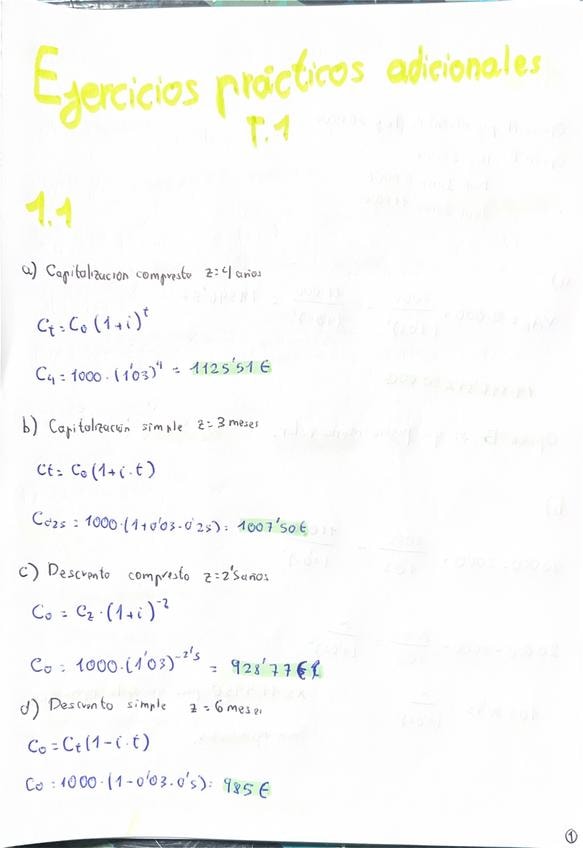 Ejercicios prácticos adicionales
T.1
1.1
a) Capitalización compuesta z=4 años
Ct = C0 (1+i)^t
C4 = 1000·(1'03)^4 = 1125'51 €
b) Capitalización simple z=3 meses
Ct = C0 (1+i·t)
C0'25 = 1000·(1+0'03·0'25) = 1007'50 €
c) Descuento compuesto z=2'5 años
C0 = Cz·(1+i)^-z
C0 = 1000·(1'03)^-2'5 = 928'77 €
d) Descuento simple z=6 meses
C0 = Ct (1-i·t)
C0 = 1000·(1-0'03·0'5) = 985 €
1